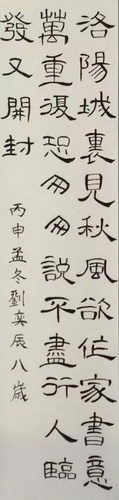 洛陽城裏見秋風欲作家書意
萬重復恐匆匆說不盡行人臨
發又開封
丙申孟冬劉奕辰八歲